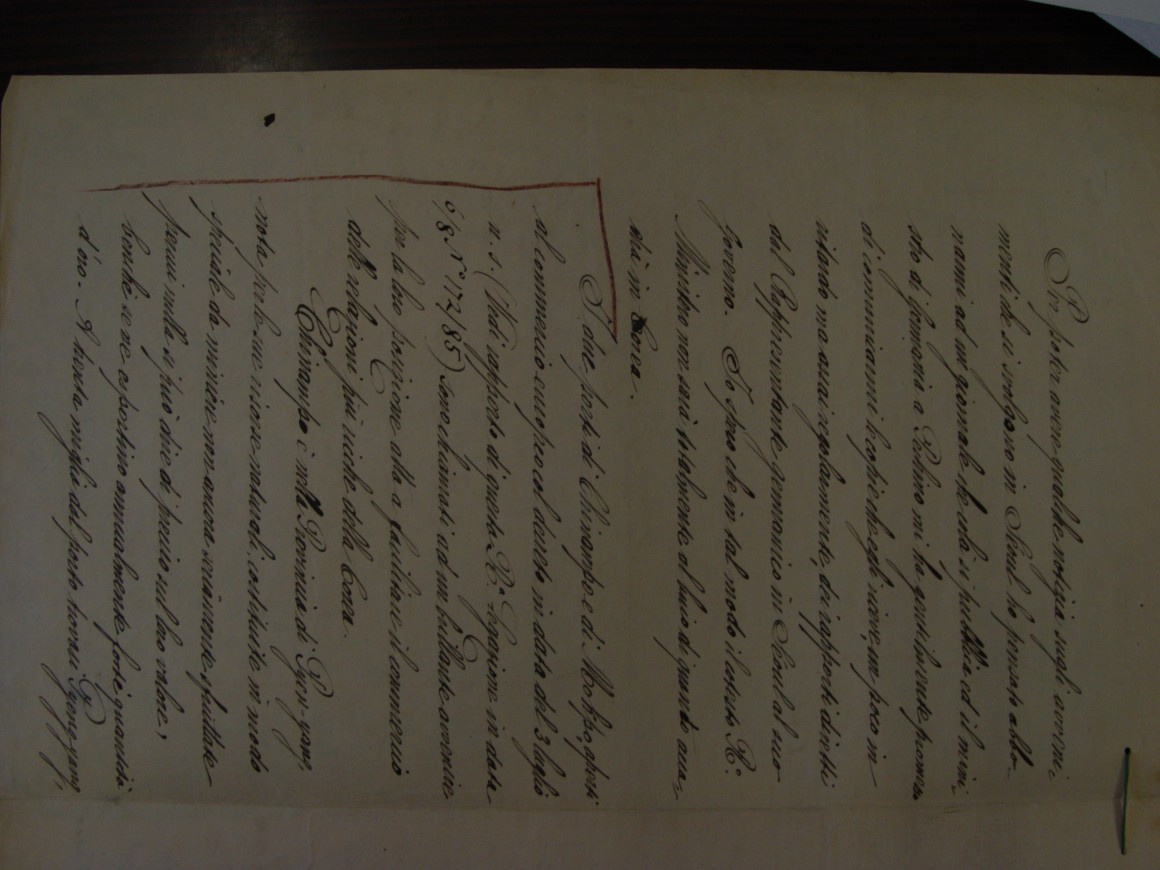 Per poter avere qualche notizia sugli avveni-
menti che si svolgono in Seoul ho pensato abbo-
narmi ad un giornale che colà si pubblica ed il mini-
stro di Germania a Pekino mi ha gentilmente promesso
di comunicarmi le copie che egli riceve, un poco in
ritardo ma assai regolarmente, dei rapporti diretti
dal Rappresentante germanico in Seoul al suo
Governo. Io spero che in tal modo il R°.
Ministro non sarà totalmente al buio di quanto acca-
drà in Corea.
I due porti di Chinampo e di Mokpo aperti
al commercio europeo col decreto in data del 3 luglio
u. s. (Vedi rapporto di questa R.a Legazione in data
6/8 N° 172/85) sono chiamati ad un brillante avvenire
per la loro posizione atta a facilitare il commercio
delle regioni più ricche della Corea.
Chinampo è nella Provincia di Pyeng-yang,
nota per le sue risorse naturali, costituite in modo
speciale da miniere non ancora seriamente sfruttate
per cui nulla si può dire di preciso sul loro valore,
benché se ne esportino annualmente forse quantità
d'oro. A trenta miglia dal porto trovasi Pyeng yang,